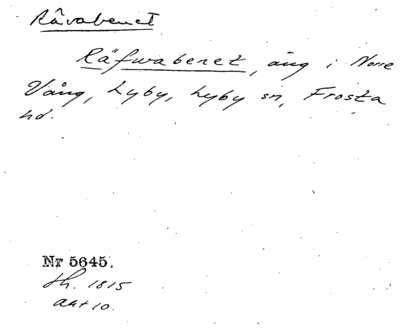 Rävabenet
Räfwabenet, äng i Norre
Vång, Lyby, Lyby sn, Frosta
hd.
Nr 5645.
Sh. 1815
akt 10.